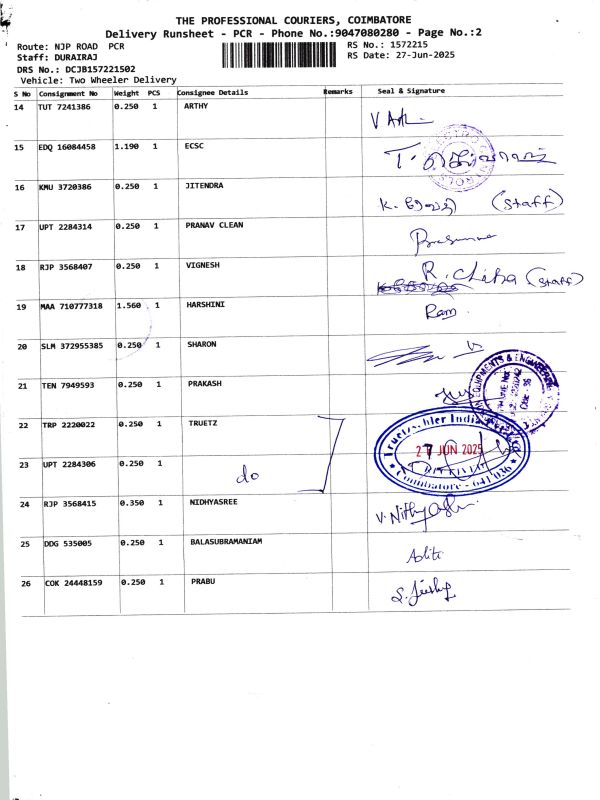 THE PROFESSIONAL COURIERS, COIMBATORE
Delivery Runsheet - PCR - Phone No.:9047080280 - Page No.:2
Route: NJP ROAD PCR
RS No.: 1572215
Staff: DURAIRAJ
RS Date: 27-Jun-2025
DRS No.: DCJB157221502
Vehicle: Two Wheeler Delivery
S No Consignment No Weight PCS Consignee Details Remarks Seal & Signature
14 TUT 7241386 0.250 1 ARTHY
15 EDQ 16084458 1.190 1 ECSC
16 KMU 3720386 0.250 1 JITENDRA
(Staff)
17 UPT 2284314 0.250 1 PRANAV CLEAN
18 RJP 3568407 0.250 1 VIGNESH
(Staff)
19 MAA 710777318 1.560 1 HARSHINI
Ram
20 SLM 372955385 0.250 1 SHARON
21 TEN 7949593 0.250 1 PRAKASH
22 TRP 2220022 0.250 1 TRUETZ
27 JUN 2025
23 UPT 2284306 0.250 1 do
Coimbatore - 641 036
24 RJP 3568415 0.350 1 NIDHYASREE
25 DDG 535005 0.250 1 BALASUBRAMANIAM
26 COK 24448159 0.250 1 PRABU